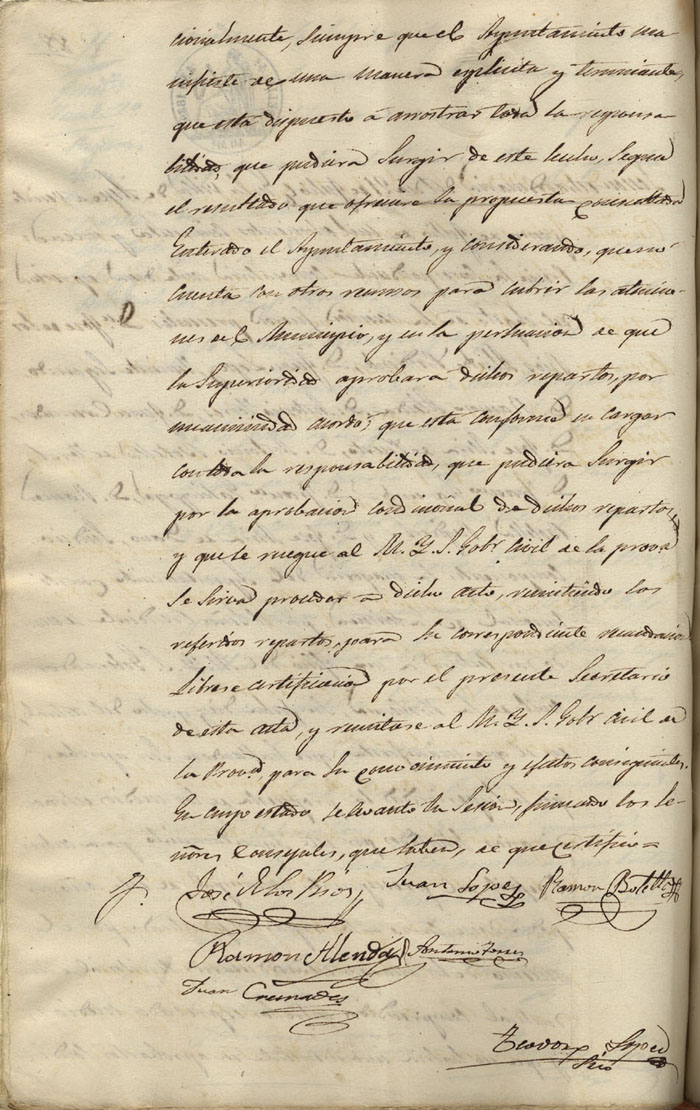 cionalmente, siempre que el Ayuntamiento ma
nifieste de una manera esplicita y terminante,
que está dispuesto á arrostrar toda la reponsa
bilidad, que pudiera surgir de este hecho, segun
el resultado que ofreciere la propuesta
Enterado el Ayuntamiento, y considerando, que no
cuenta con otros recursos para cubrir las atencio-
nes del Municipio, y en la persuacion de que
la Superioridad aprobará dichos repartos, por
unanimidad acordó; que está conforme en cargar
con toda la responsabilidad, que pudiera surgir
por la aprobacion condicional de dichos repartos,
y que se ruegue al M. Y. S. Gobr Civil de la provª
se sirva proceder a dicho acto, remitiendo los
referidos repartos, para su correspondiente recaudacion
Librese certificacion por el presente Secretario
de esta acta, y remitase al M. Y. S. Gobr Civil de
la Provª para su conocimiento y efectos consiguientes.
En cuyo estado se levanto la Sesion, firmado los Se-
ñores Consejales, que saben, de que certifico=
José de los Rios Juan Lopez Ramon
Ramon Alenda Antonio Torres
Juan Cremades
Teodoro Lopez
Srio